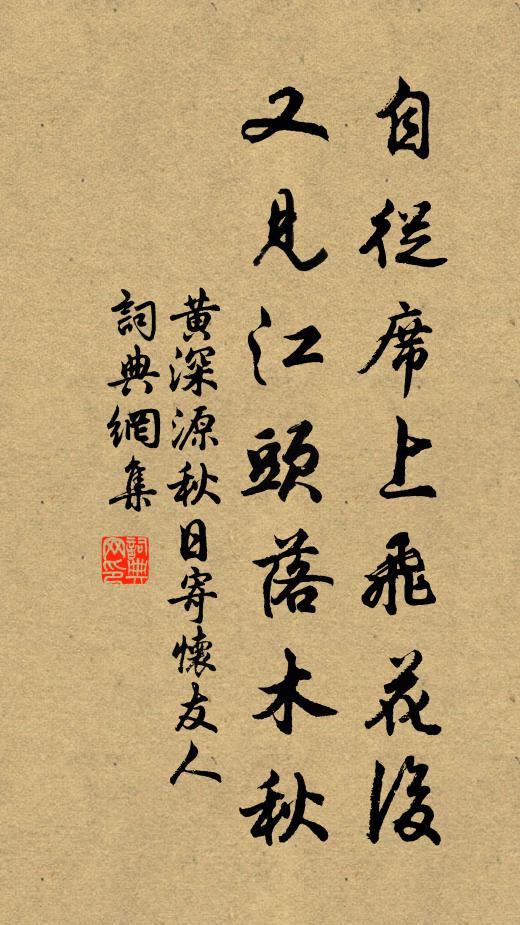 自從席上飛花後
又見江頭落木秋
黃深源秋日寄懷友人
詞典網集
詞典
网印